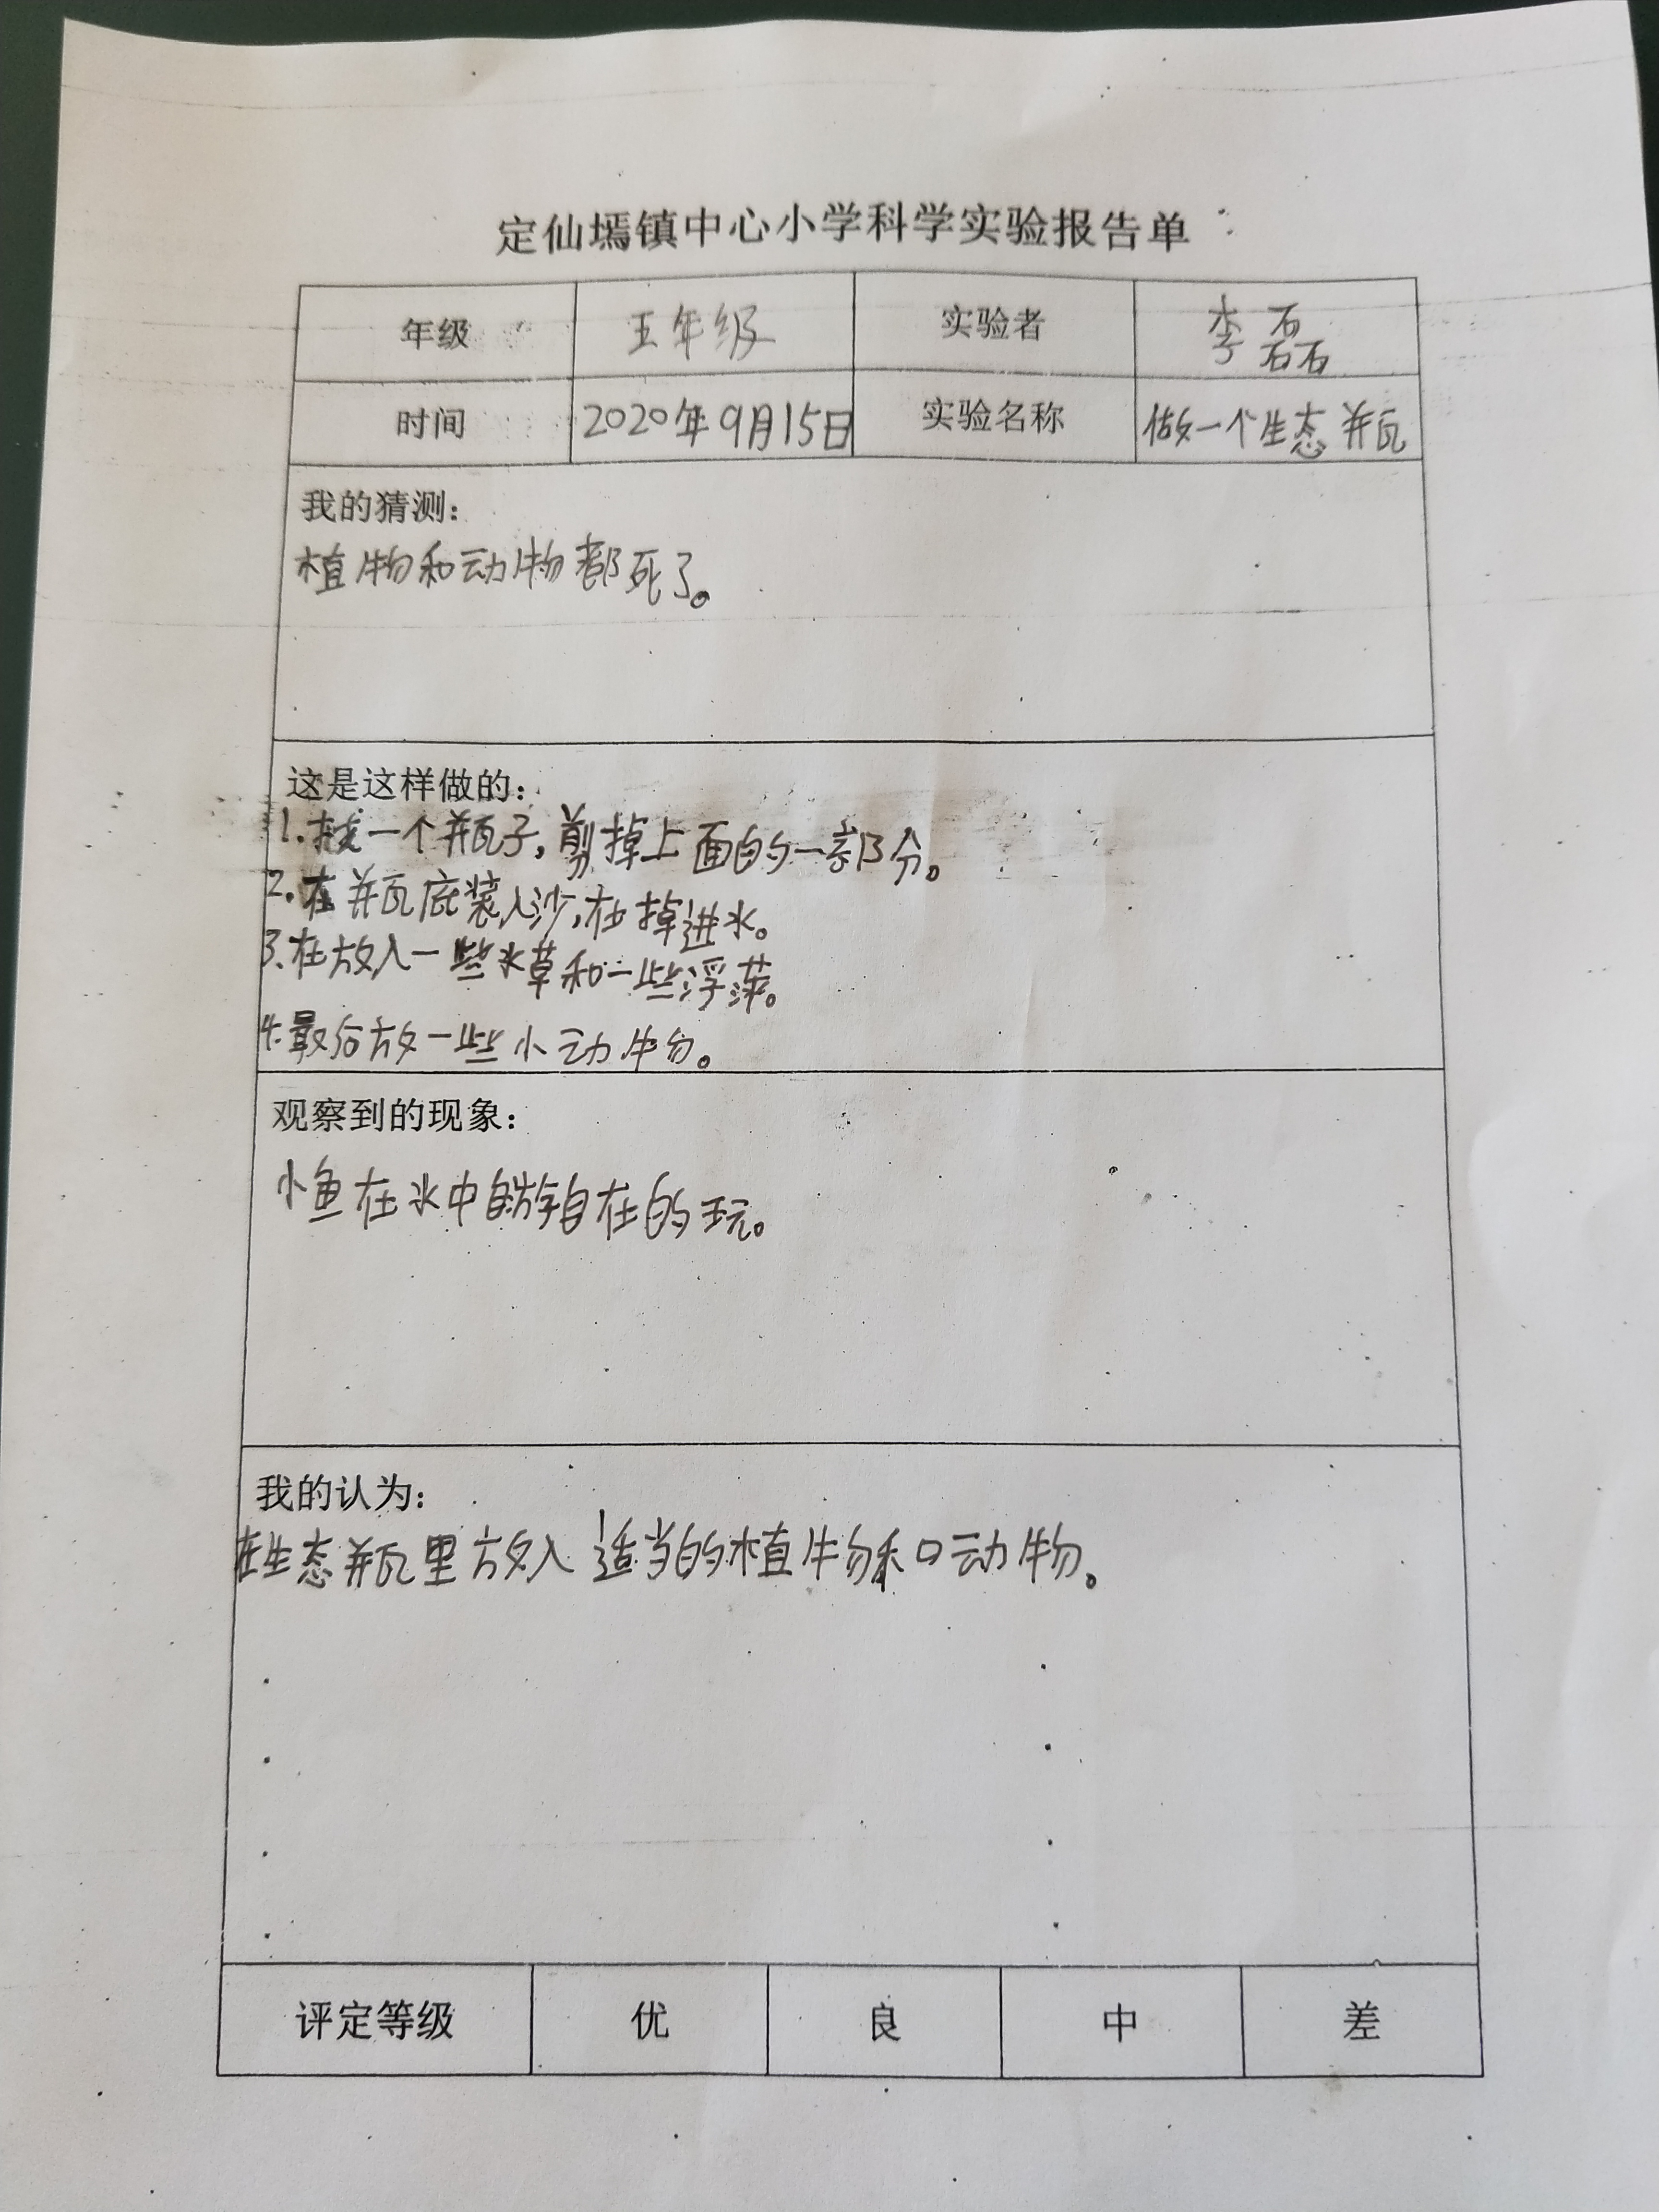 定仙墕镇中心小学科学实验报告单
年级 五年级 实验者 李磊
时间 2020年9月15日 实验名称 做一个生态瓶
我的猜测：
植物和动物都死了。
这是这样做的：
1.找一个瓶子，剪掉上面的一部分。
2.在瓶底装入沙，在掉进水。
3.在放入一些水草和一些浮萍。
4.最后放一些小动物。
观察到的现象：
小鱼在水中自游自在的玩。
我的认为：
在生态瓶里放入适当的植物和动物。
评定等级 优 良 中 差